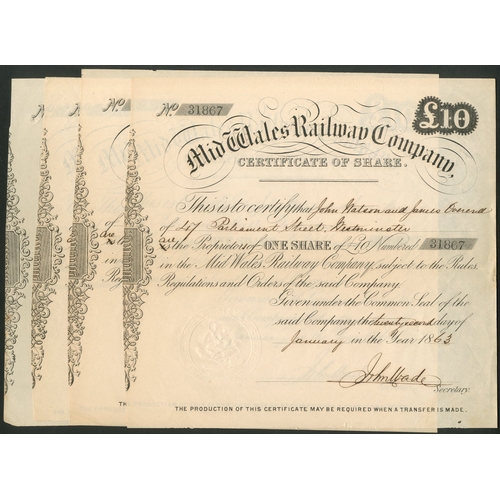 No. 31867
£10
Mid Wales Railway Company,
CERTIFICATE OF SHARE.
This is to certify that John Watson and James Overend
of 47 Parliament Street, Westminster
are the Proprietors of ONE SHARE of £10 Numbered 31867
in the Mid Wales Railway Company, subject to the Rules,
Regulations and Orders of the said Company.
Given under the Common Seal of the
said Company, the twenty second day of
January in the Year 1863
John Wade
Secretary.
THE PRODUCTION OF THIS CERTIFICATE MAY BE REQUIRED WHEN A TRANSFER IS MADE.
No.
No.
of
are
in